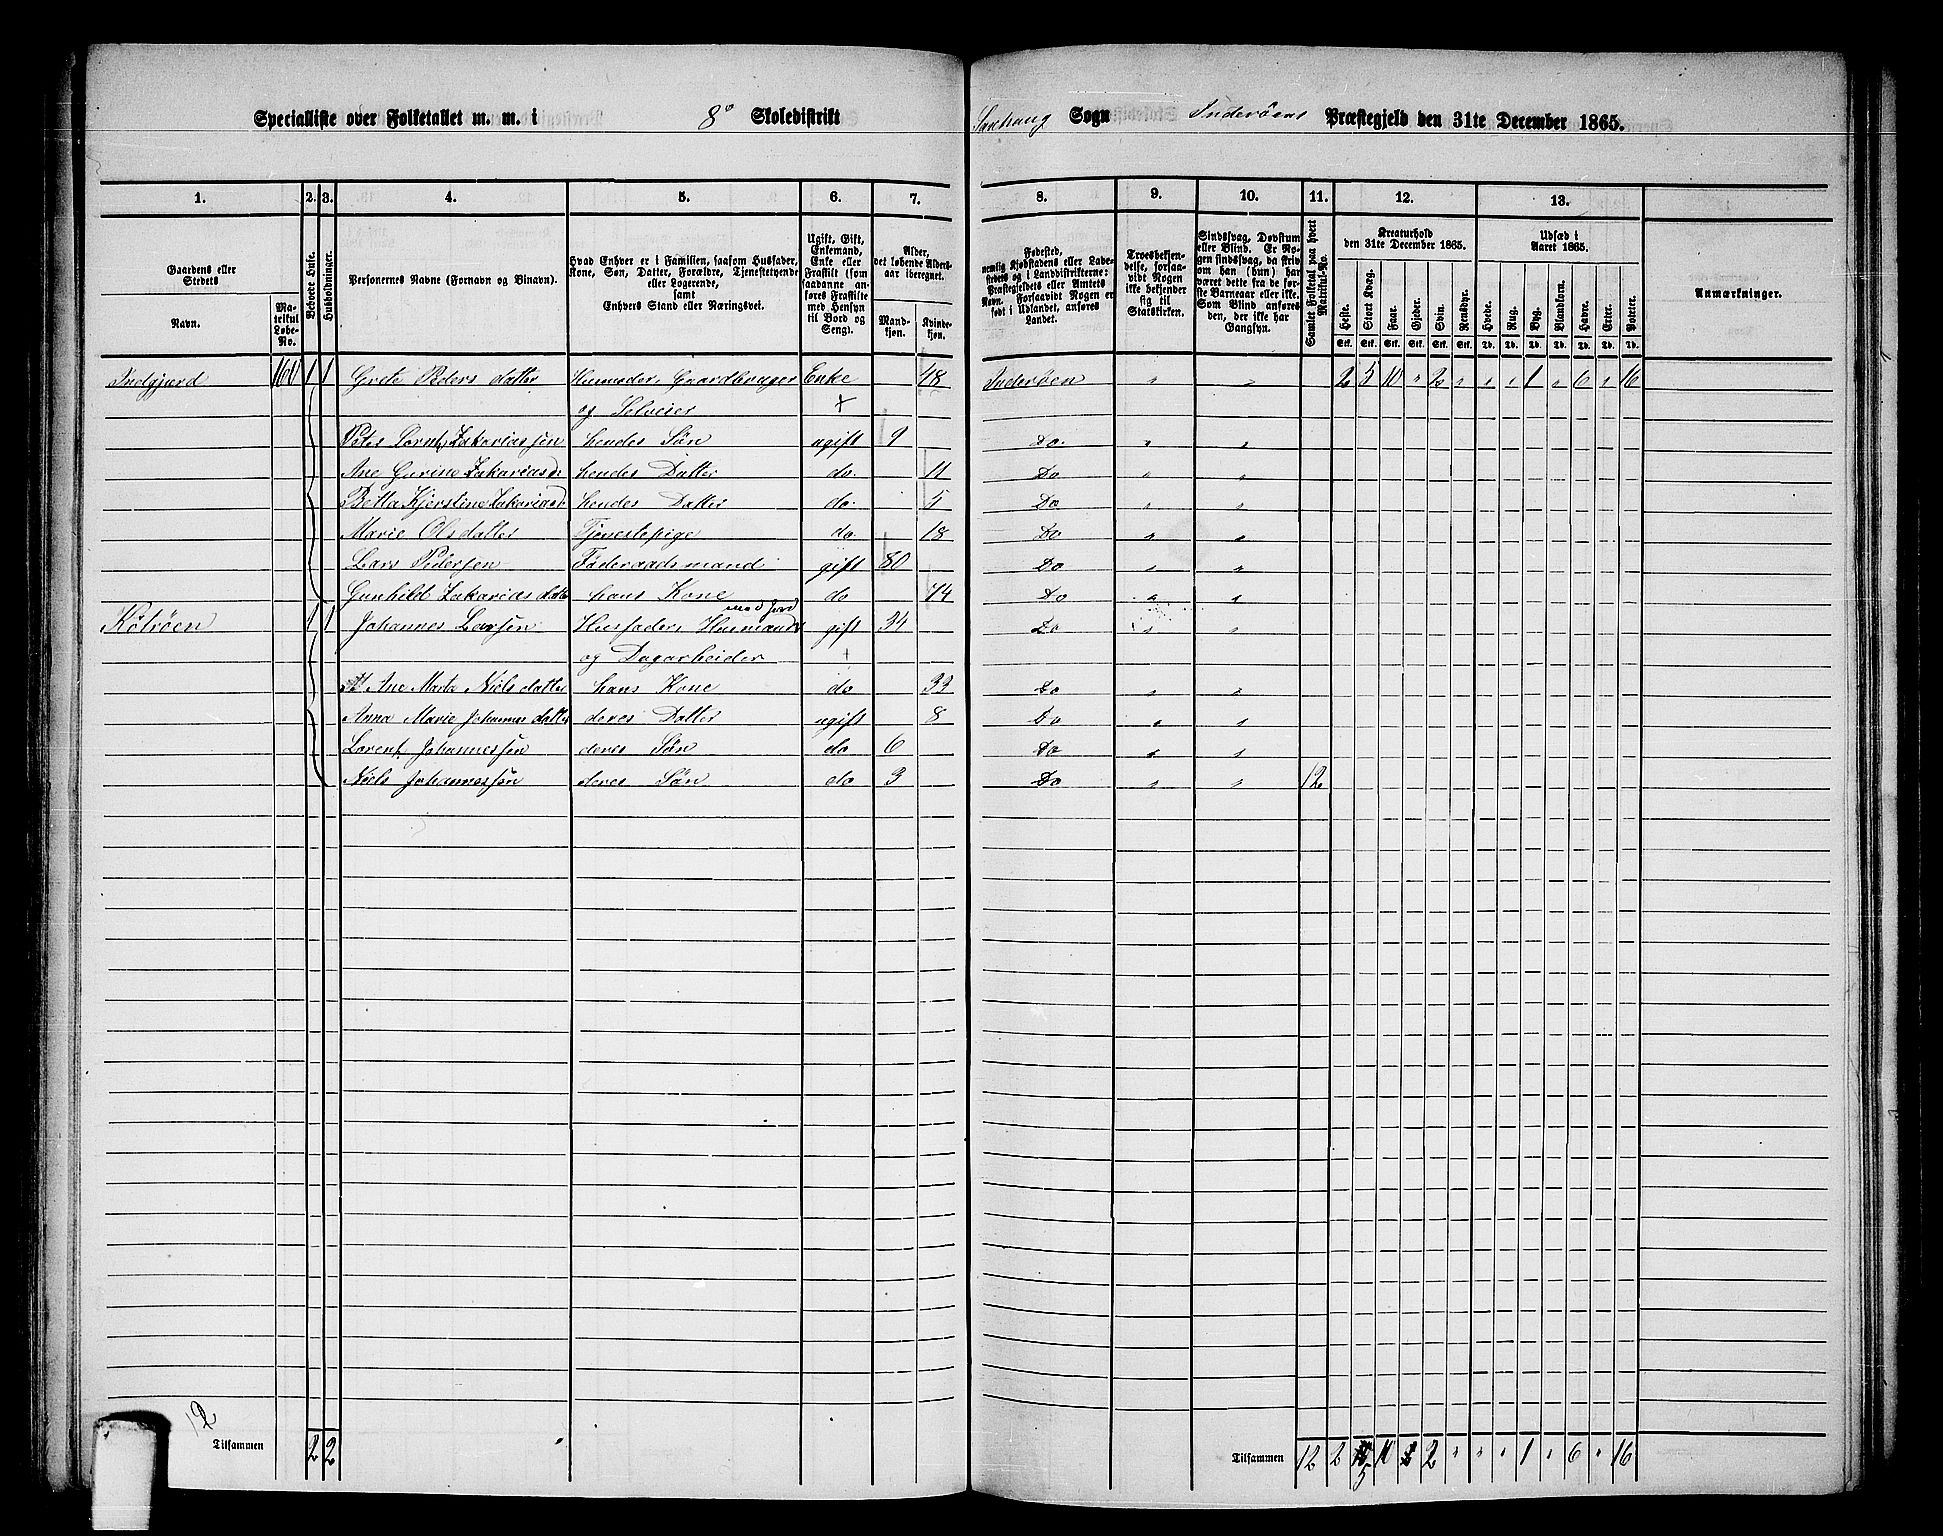 Specialliste over Folketallet m. m. i 8de Skoledistrikt Saxhaug Sogn Inderöens Præstegjeld den 31te December 1865.
1. 2. 3. 4. 5. 6. 7. 8. 9. 10. 11. 12. 13.
Gaardens eller Stedets
Navn.
Matrikul Løbe-No.
Beboede Huse.
Husholdninger.
Personernes Navne (Fornavn og Binavn).
Hvad Enhver er i Familien, saasom Husfader, Kone, Søn, Datter, Forældre, Tjenestetyende eller Logerende, samt Enhvers Stand eller Næringsvei.
Ugift, Gift, Enkemand, Enke eller Fraskilt (som saadanne anføres Fraskilte med Hensyn til Bord og Seng).
Alder, det løbende Aldersaar iberegnet.
Mandkjøn. Kvindekjøn.
Fødested, nemlig Kjøbstadens eller Ladestedets og i Landdistrikterne: Præstegjeldets eller Amtets Navn. Forsaavidt Nogen er født i Udlandet, anføres Landet.
Troesbekjendelse, forsaavidt Nogen ikke bekjender sig til Statskirken.
Sindssvag, Døvstum eller Blind. Er Nogen sindssvag, da skrives om han (hun) har været dette fra de første Barneaar eller ikke. Som Blind anføres den, der ikke har Gangsyn.
Samlet Folketal paa hvert Matrikul-No.
Kreaturhold den 31te December 1865.
Heste. Stort Kvæg. Faar. Gjeder. Svin. Rensdyr.
Stk. Stk. Stk. Stk. Stk. Stk.
Udsæd i Aaret 1865.
Hvede. Rug. Byg. Blandkorn. Havre. Erter. Poteter.
Td. Td. Td. Td. Td. Td. Td.
Anmærkninger.
Indgjærd 1 1 Grete Peders datter Husmoder, Gaardbruger Enke 48 Inderöen " " 2 5 10 " 2 " " " 1 " 6 " 16
og Selveier +
Peter Bernt Zakariassen hendes Søn ugift 9 Do. " "
Ane Gurine Zakariasd. hendes Datter do. 11 Do " "
Betta Kjerstine Zakariasd hendes Datter do. 5 Do " "
Marie Olsdatter Tjenestepige do. 18 Do " "
Lars Pedersen Föderaadsmand gift 80 Do " "
Gunhild Zakarias datter hans Kone do 74 Do " "
Kölröen 1 1 Johannes Larsen Husfader, Husmand med Jord gift 34 Do " "
og Dagarbeider +
Ane Marta Niels datter hans Kone do 33 Do " "
Anna Marie Johannes datter deres Datter ugift 8 Do " "
Lorents Johannessen deres Søn do 6 Do " "
Niels Johannessen deres Søn do 3 Do " " 12
12
Tilsammen 2 2
Tilsammen 12 2 5 2 " " " 1 " 6 " 16